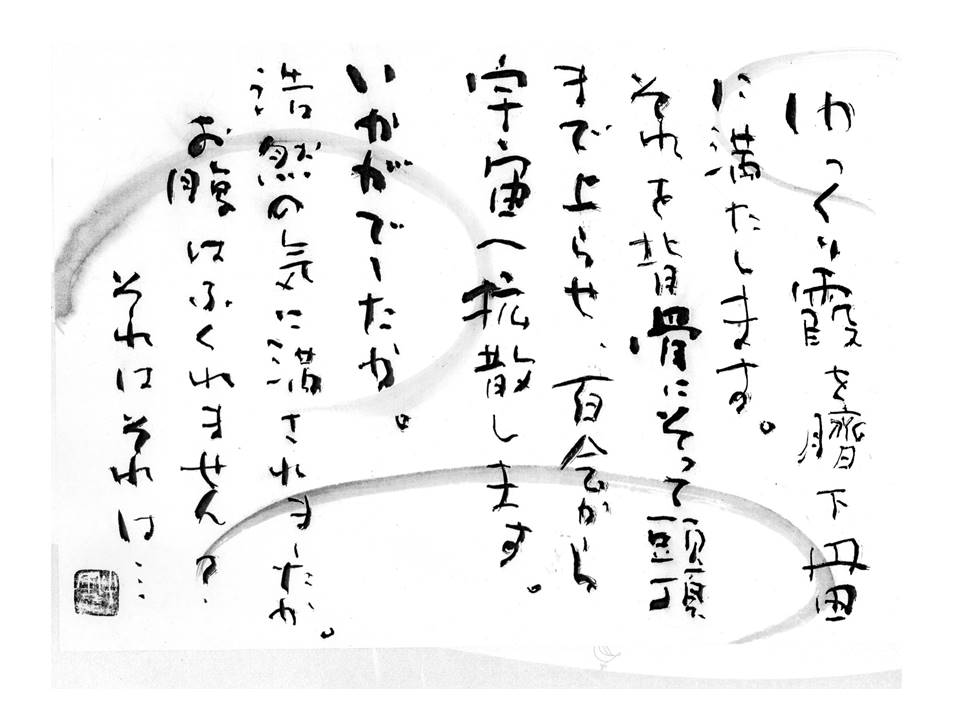 ゆっくり霞を臍下丹田
に満たします。
それを背骨にそって頭頂
まで上らせ、百会から
宇宙へ拡散します。
いかがでしたか。
浩然の気に満されましたか。
お腹はふくれません?
それはそれは…